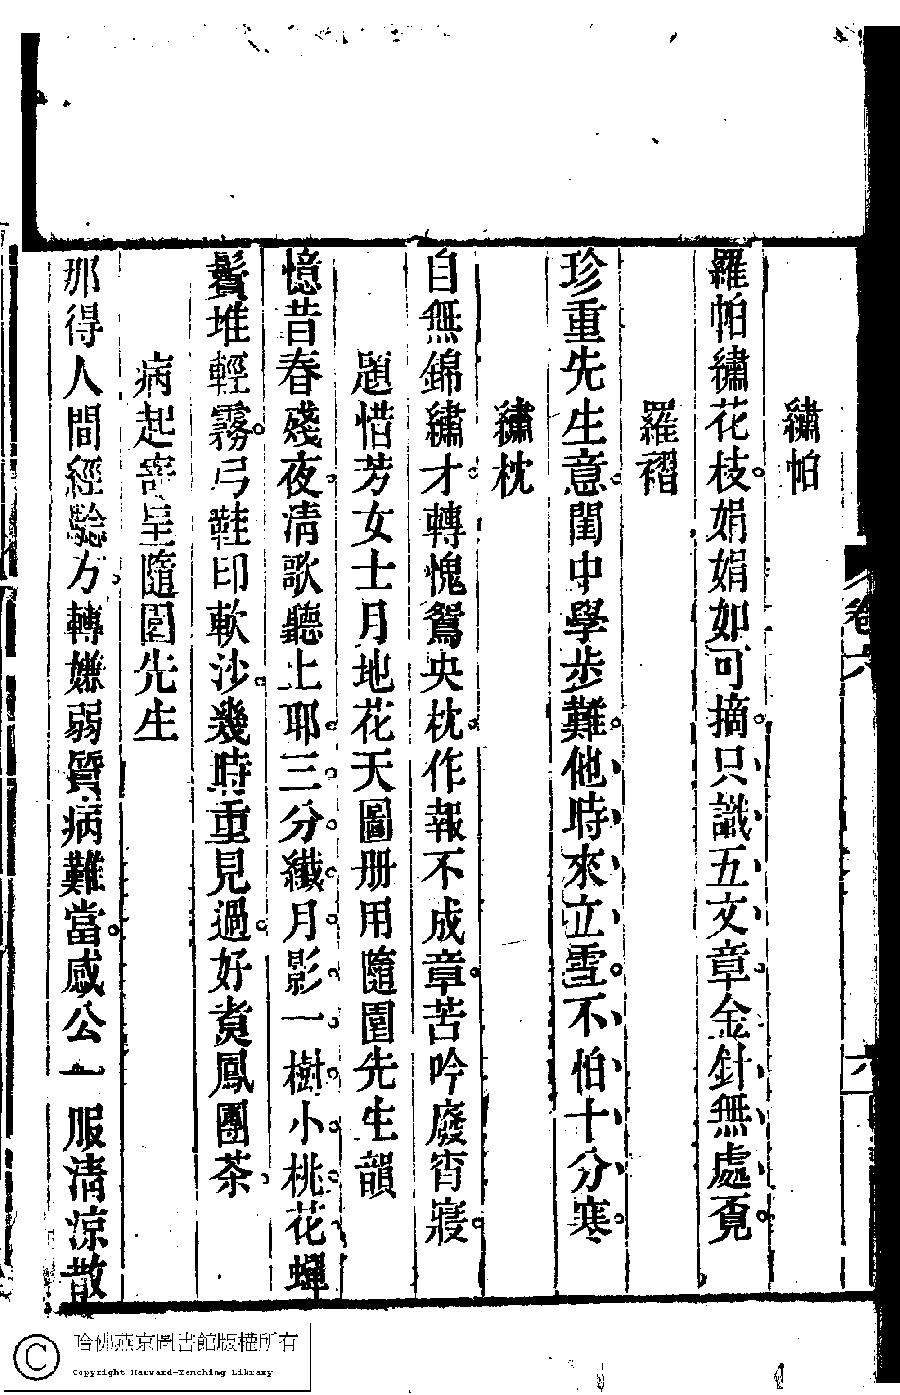 繡帕
羅帕繡花枝。娟娟如可摘。只識五文章。金針無處覔。
羅褶
珍重先生意。閨中學步難。他時來立雪。不怕十分寒。
繡枕
自無錦繡才。轉愧鴛央枕。作報不成章。苦吟廢宵寢。
題惜芳女士月地花天圖册用隨園先生韻
憶昔春殘夜。清歌聽上耶。三分纖月影。一樹小桃花。蟬
鬢堆輕霧。弓鞋印軟沙。幾時重見過。好煑鳳團茶
病起寄呈隨園先生
那得人間經驗方。轉嫌弱質病難當。感公一服清凉散
卷六
六
哈佛燕京圖書館版權所有
Copyright Harvard-Yenching Library